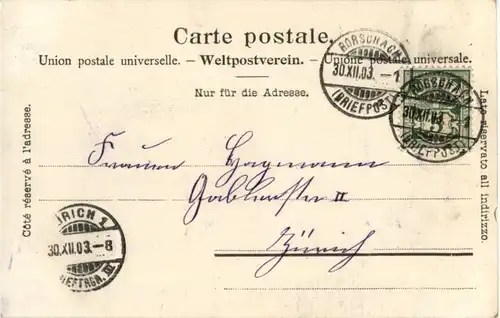 Carte postale.
Union postale universelle. – Weltpostverein. – Unione postale universale.
Nur für die Adresse.
Côté réservé à l'adresse.
Lato riservato all indirizzo.
RORSCHACH
30.XII.03. – 1
(BRIEFPOST)
RORSCHACH
30.XII.03. 1
(BRIEFPOST)
Hagmann
II
Zürich
ZÜRICH 1
30.XII.03. – 8
BRIEFTRGR. III